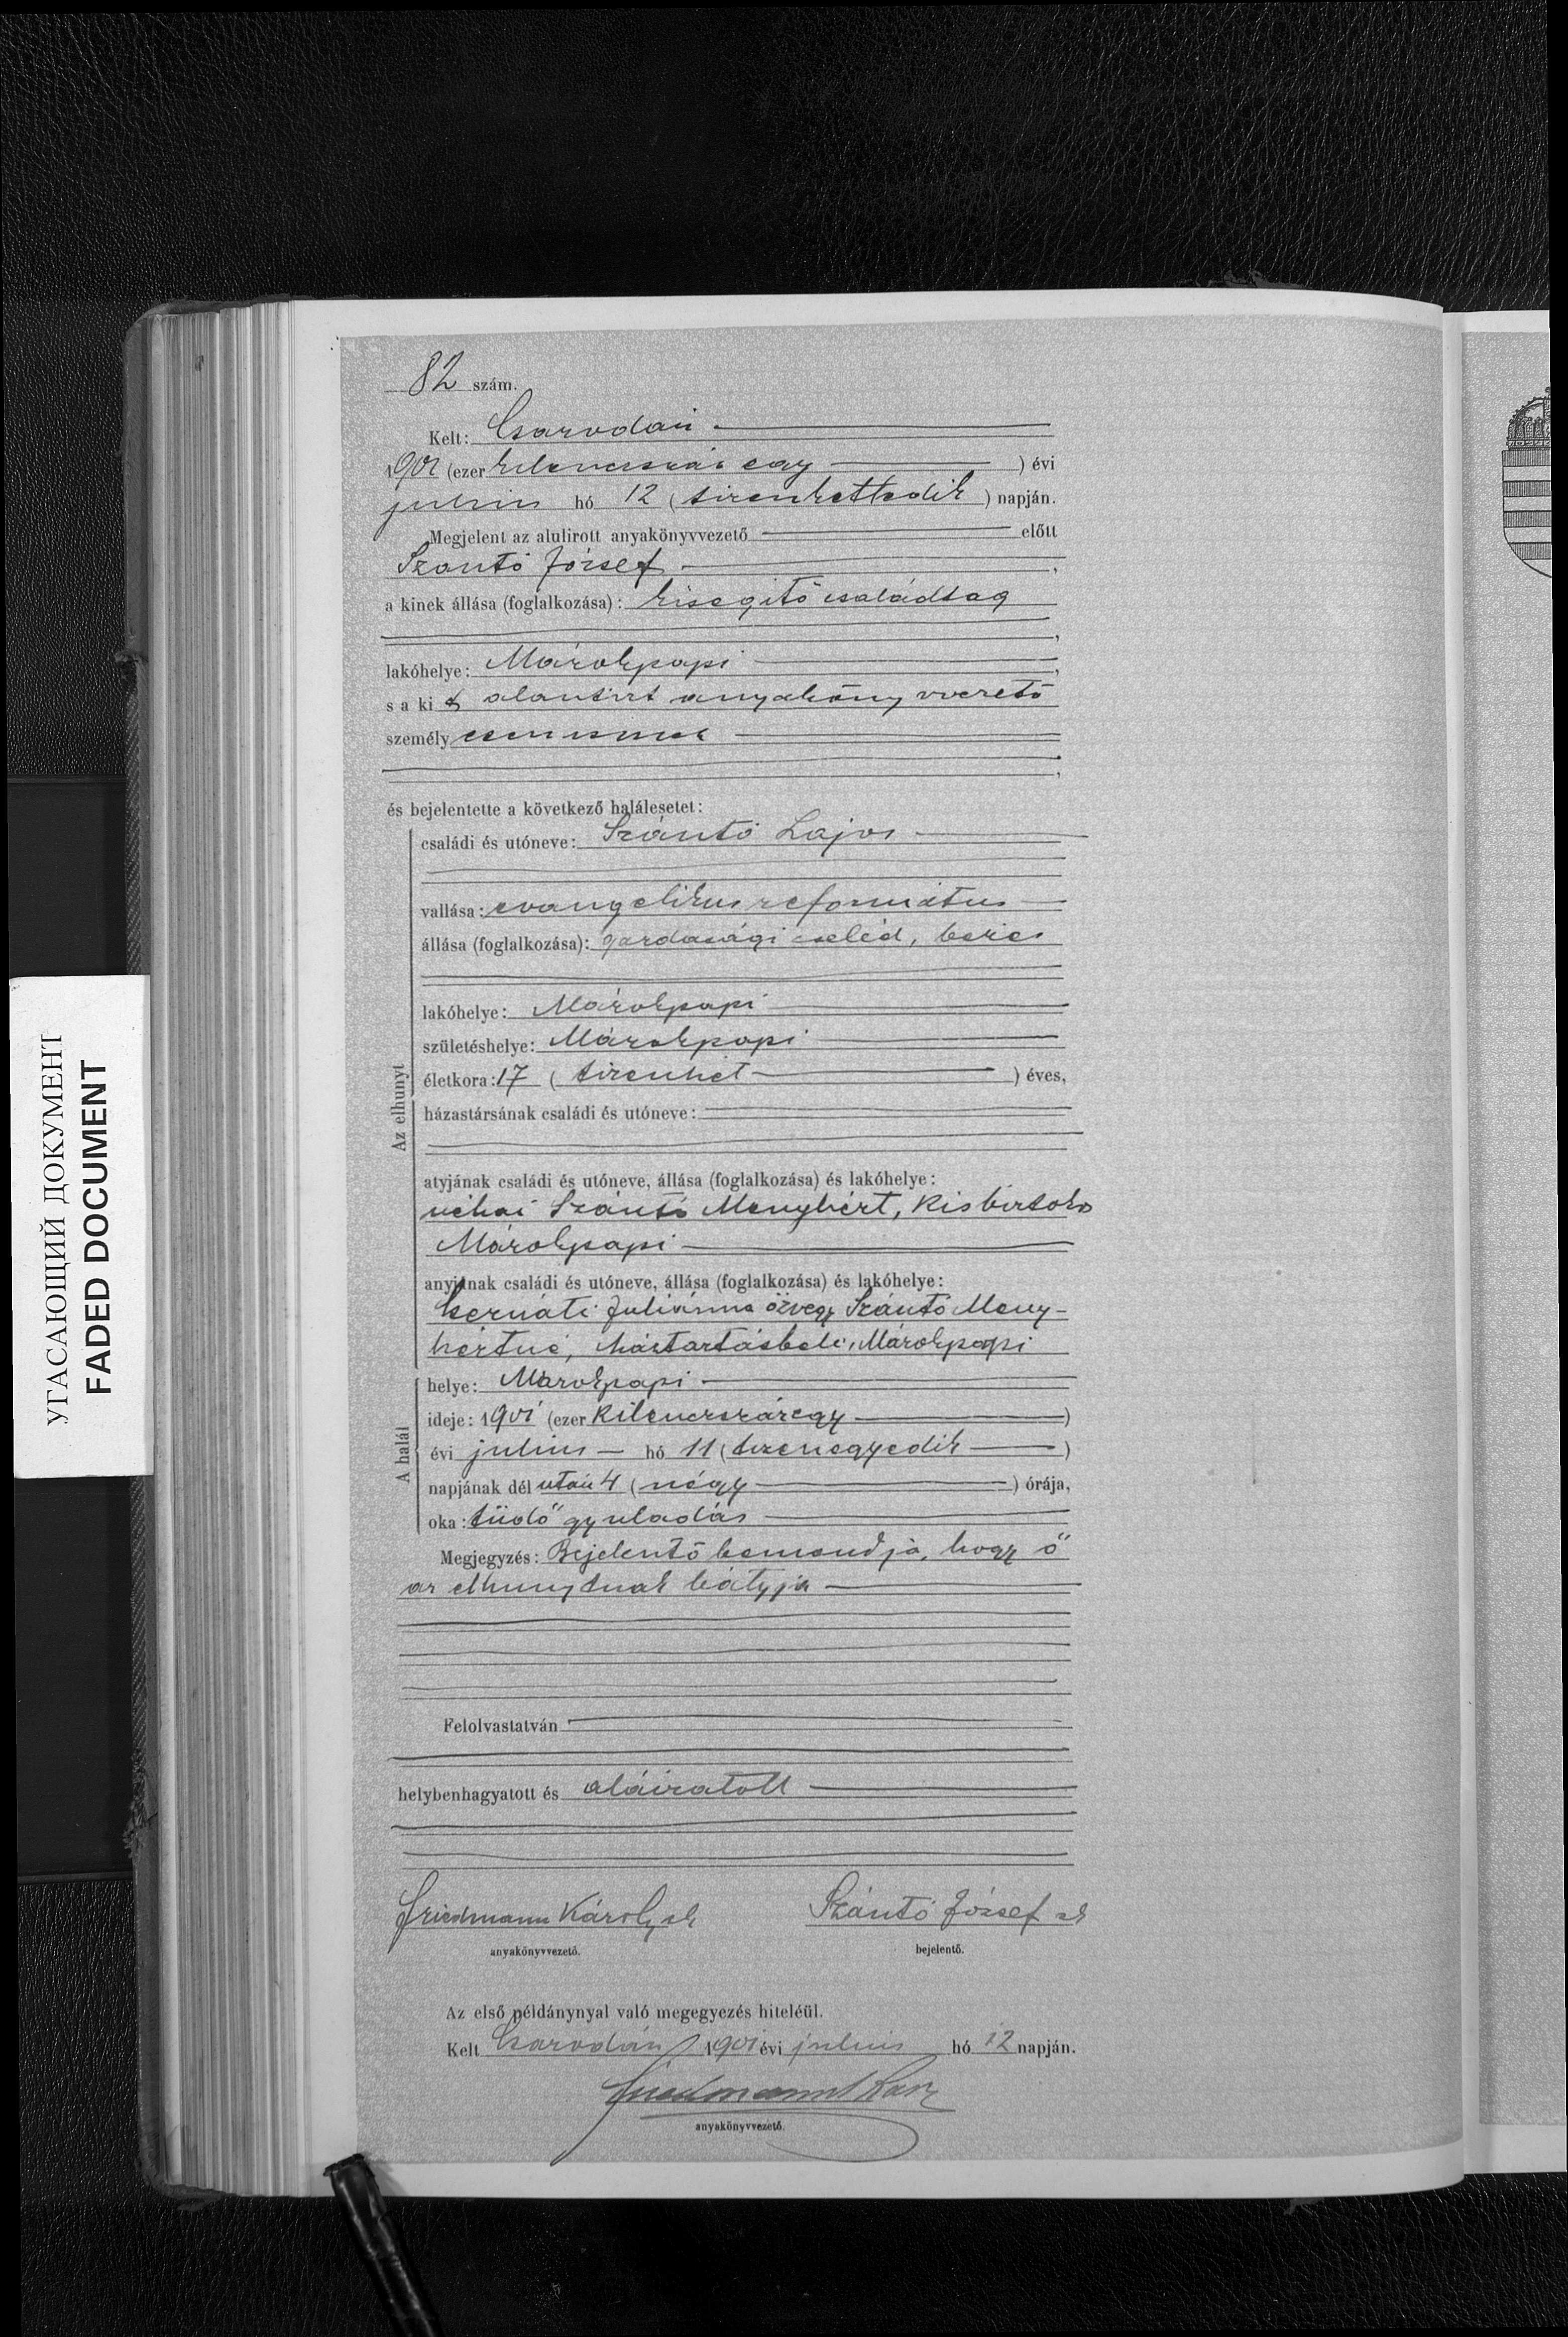 82 szám.
Kelt: Csarodán
1901 (ezer kilencszáz egy) évi
julius hó 12 (tizenkettedik) napján.
Megjelent az alulirott anyakönyvvezető előtt
Szántó József,
a kinek állása (foglalkozása): kisegitő családtag
,
lakóhelye: Márokpapi,
s a kit alantirt anyakönyvvezető
személyesen ismer
,
és bejelentette a következő halálesetet:
Az elhunyt
családi és utóneve: Szántó Lajos
vallása: evangelikus református
állása (foglalkozása): gazdasági cseléd, béres
lakóhelye: Márokpapi
születéshelye: Márokpapi
életkora: 17 (tizenhet) éves,
házastársának családi és utóneve:
atyjának családi és utóneve, állása (foglalkozása) és lakóhelye:
néhai Szántó Menyhért, Kisbirtokos
Márokpapi
anyjának családi és utóneve, állása (foglalkozása) és lakóhelye:
Juliánna özvegy Szántó Meny-
hértné, háztartásbeli, Márokpapi
A halál
helye: Márokpapi
ideje: 1901 (ezer kilencszázegy)
évi julius hó 11 (tizenegyedik)
napjának dél után 4 (négy) órája,
oka: tüdő gyuladás
Megjegyzés: Bejelentő bemondja, hogy ő
az elhunytnak bátyja
Felolvastatván
helybenhagyatott és aláiratott
Friedmann Károly sk
anyakönyvvezető.
Szántó József sk
bejelentő.
Az első példánynyal való megegyezés hiteléül.
Kelt Csarodán 1901 évi julius hó 12 napján.
Friedmann
anyakönyvvezető.
УГАСАЮЩИЙ ДОКУМЕНТ
FADED DOCUMENT